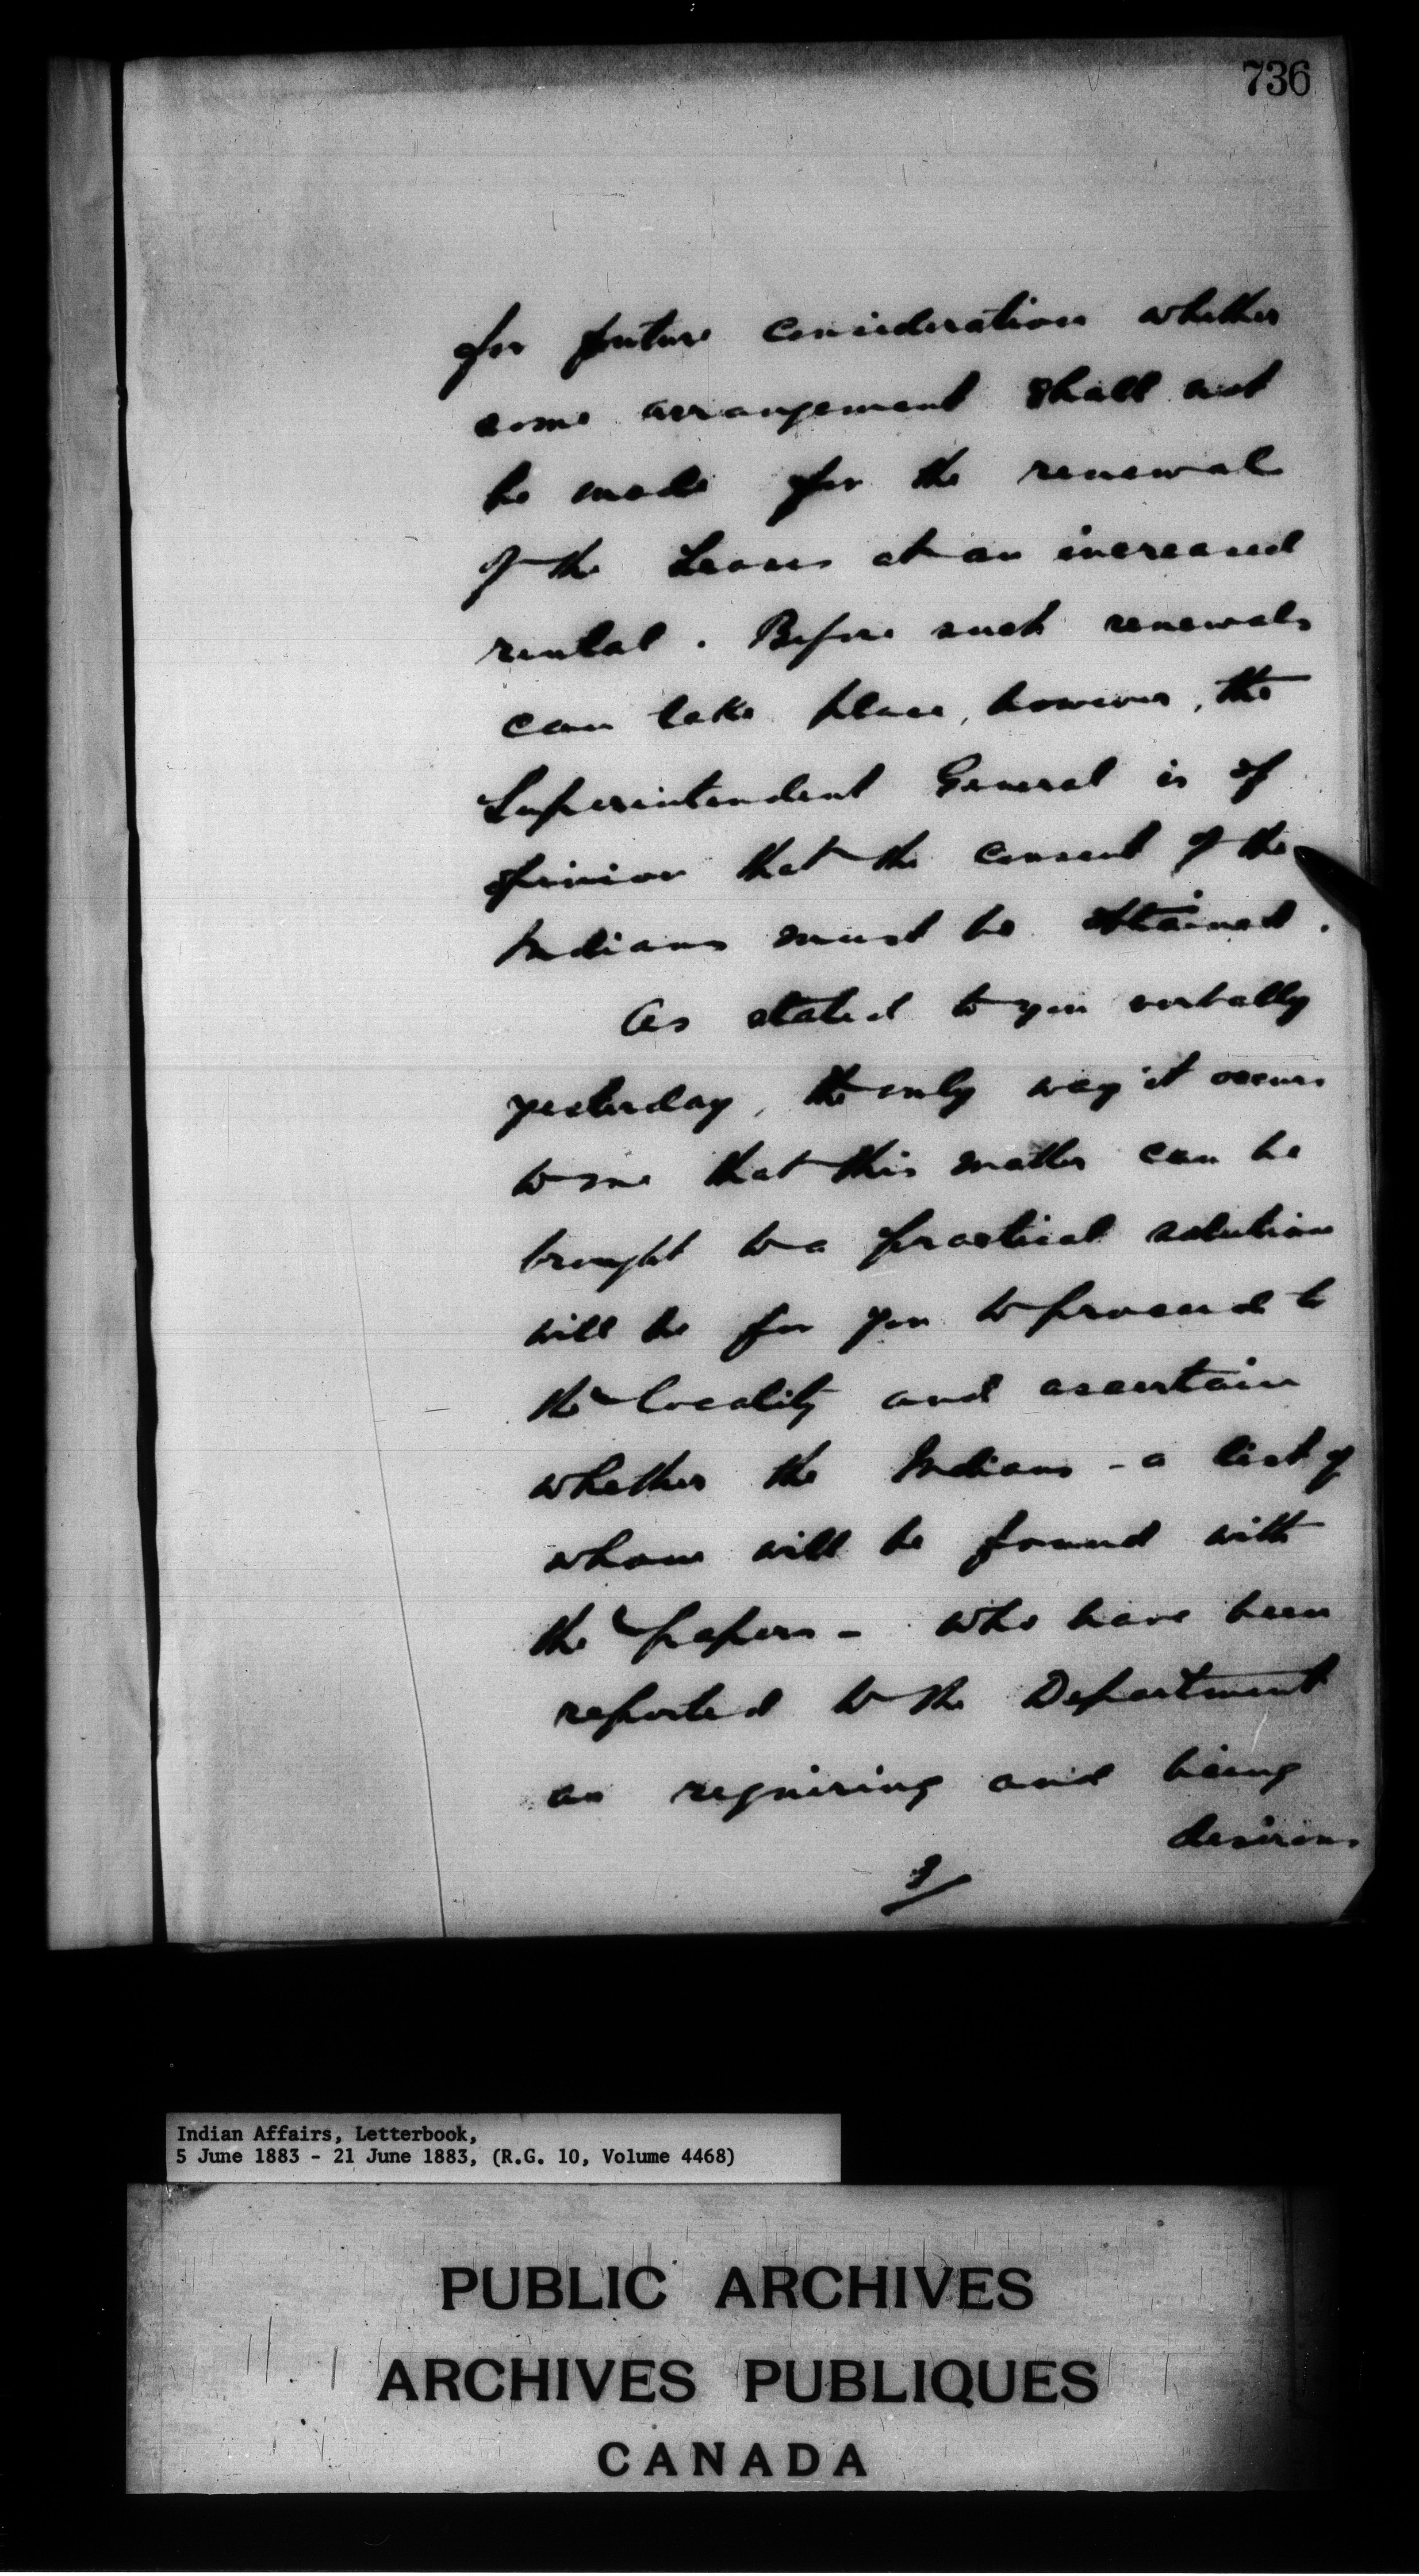 736
for future consideration whether
some arrangement shall not
be made for the renewal
of the Leases at an increased
rental. Before such renewals
can take place, however, the
Superintendent General is of
opinion that the consent of the
Indians must be obtained.
As stated to you verbally
yesterday, the only way it occurs
to me that this matter can be
brought to a practical solution
will be for you to proceed to
the locality and ascertain
whether the Indians - a list of
whom will be found with
the papers - who have been
reported to the Department
as requiring and being
desirous
3/
Indian Affairs, Letterbook,
5 June 1883 - 21 June 1883, (R.G. 10, Volume 4468)
PUBLIC ARCHIVES
ARCHIVES PUBLIQUES
CANADA